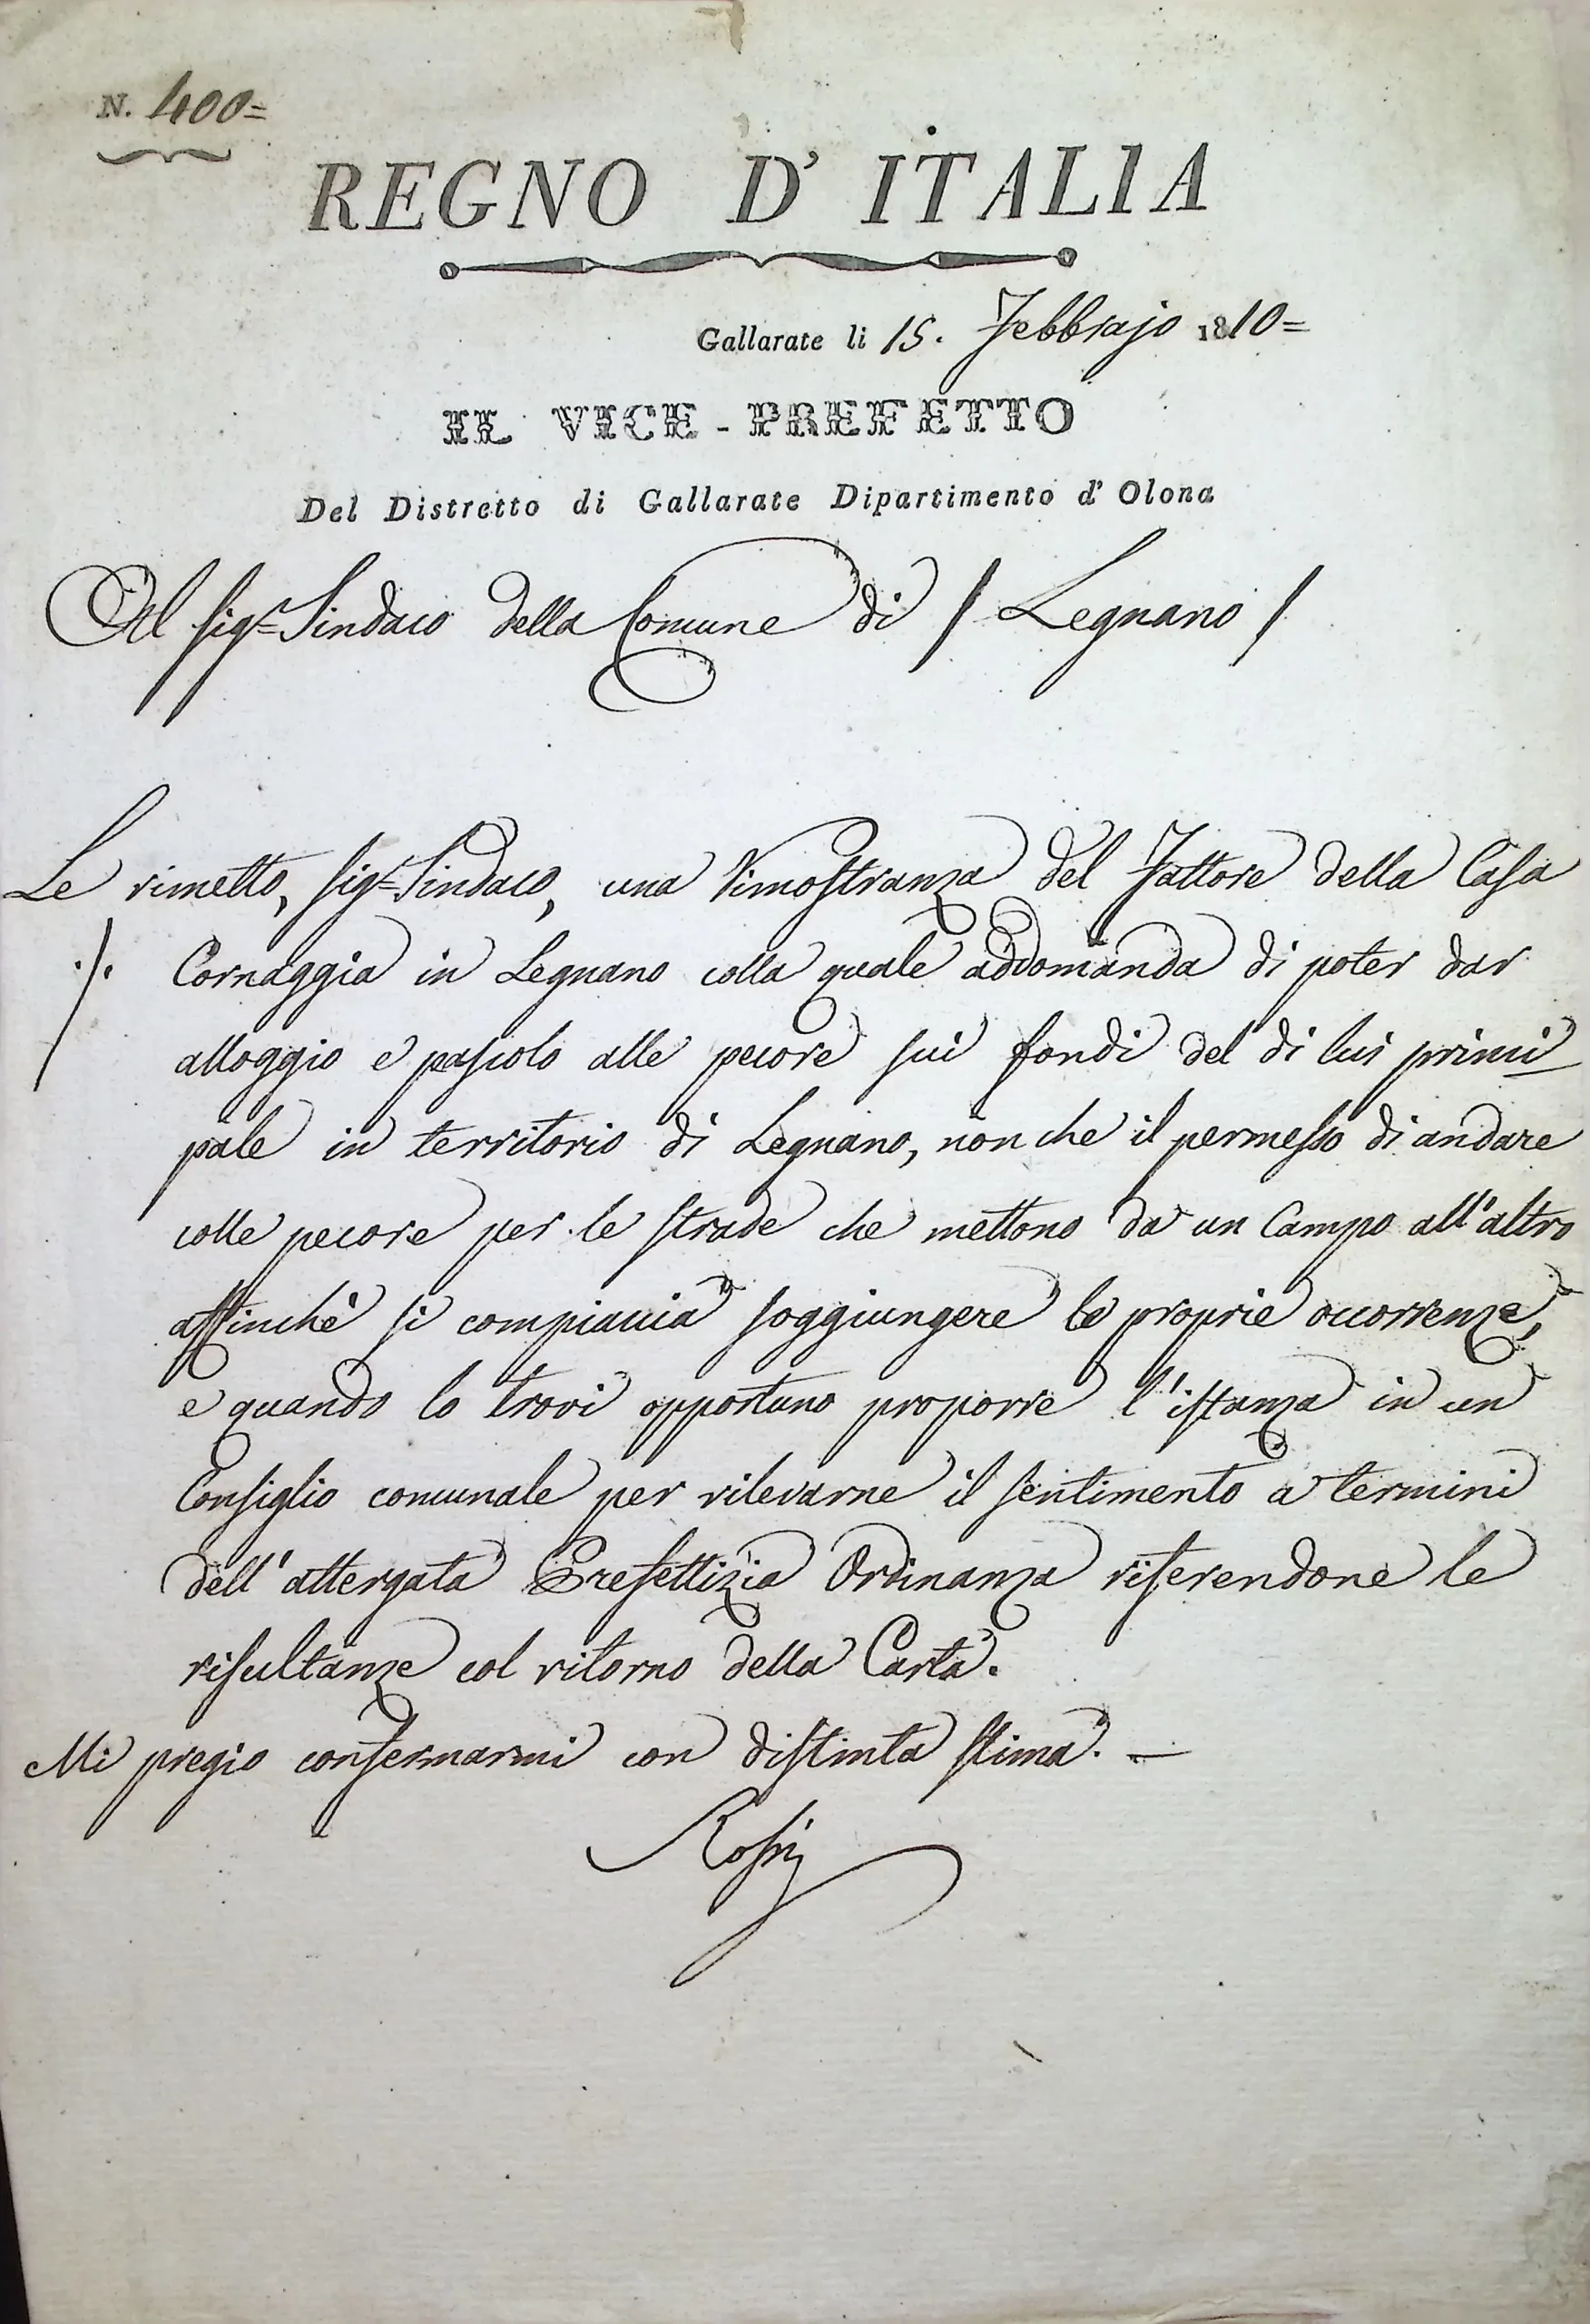 N. 400=
REGNO D' ITALIA
Gallarate li 15. Febbrajo 1810=
IL VICE-PREFETTO
Del Distretto di Gallarate Dipartimento d' Olona
Al Sigr. Sindaco della Comune di / Legnano /
Le rimetto, Sigr. Sindaco, una Rimostranza del Fattore della Casa
./. Cornaggia in Legnano colla quale addomanda di poter dar
alloggio e pascolo alle pecore sui fondi del di lui princi
pale in territorio di Legnano, non che il permesso di andare
colle pecore per le strade che mettono da un Campo all'altro
affinchè si compiaccia soggiungere le proprie occorrenze,
e quando lo trovi opportuno proporre l'istanza in un
Consiglio comunale per rilevarne il sentimento a termini
dell'attergata Prefettizia Ordinanza riferendone le
risultanze col ritorno della Carta.
Mi pregio confermarmi con distinta stima. —
Rossi